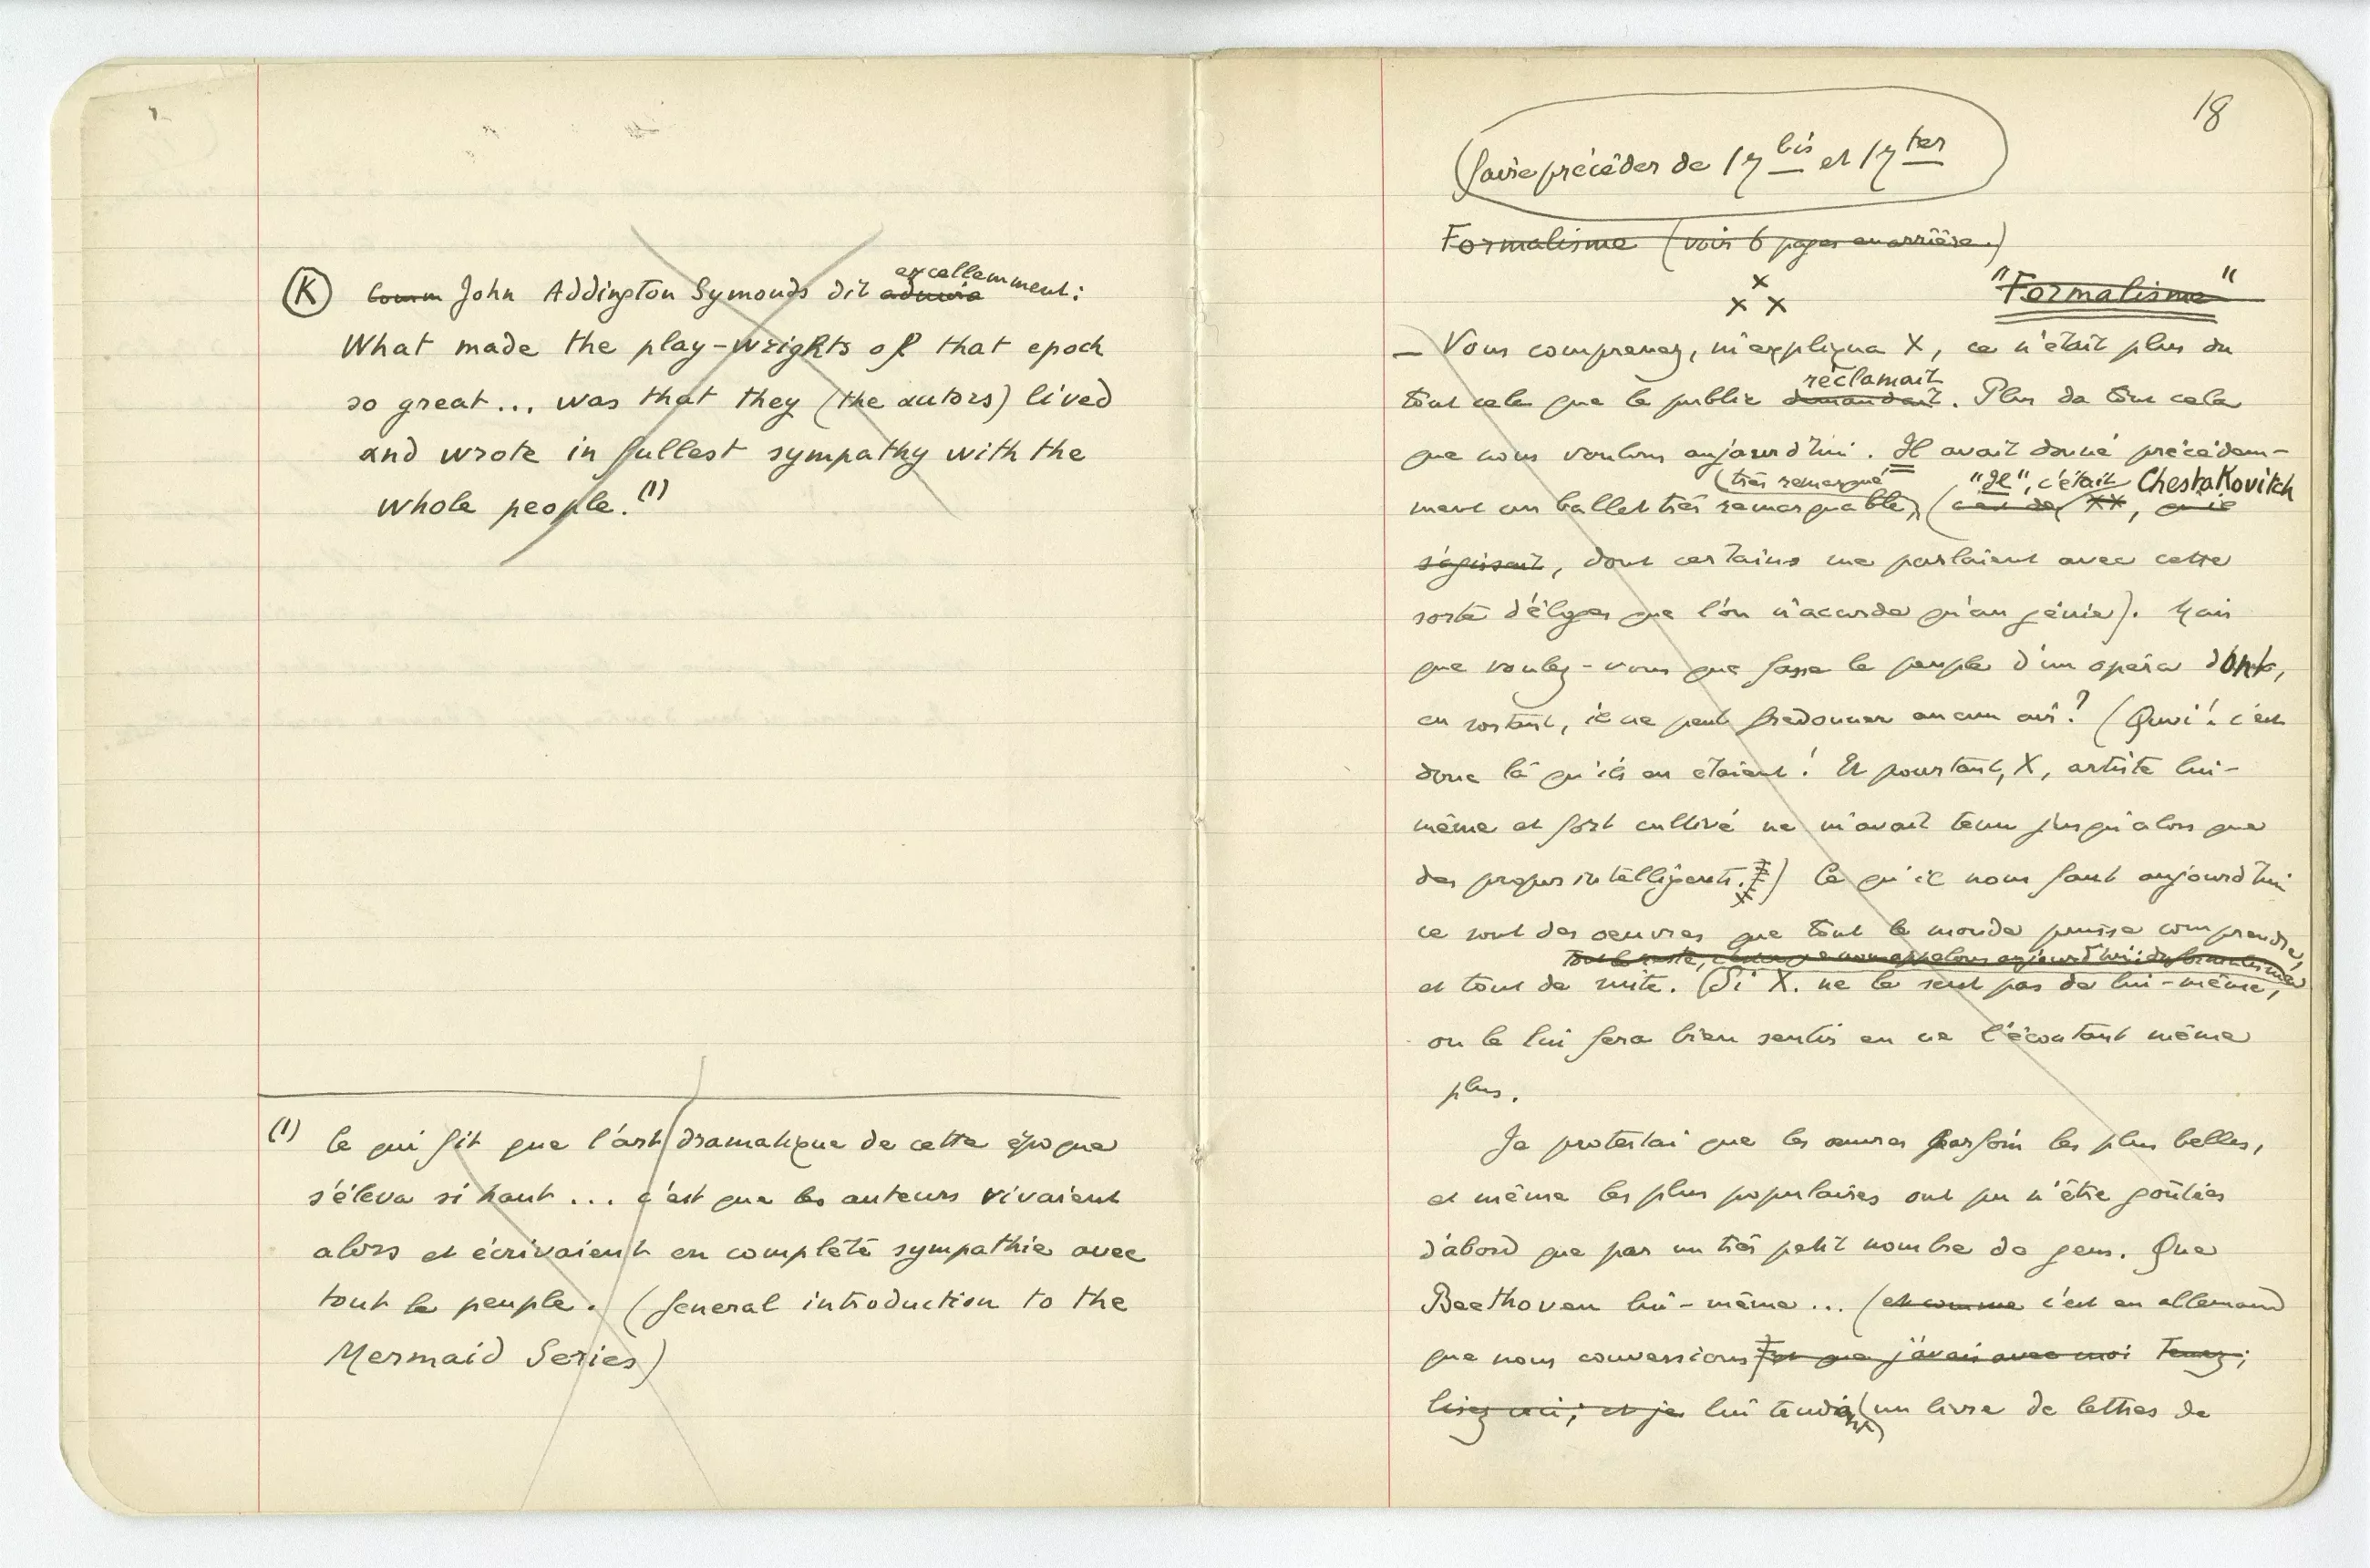 (K) Comm John Addington Symonds dit admira excellemment:
What made the play-wrights of that epoch
so great... was that they (the autors) lived
and wrote in fullest sympathy with the
whole people. (1)
(1) Ce qui fit que l'art dramatique de cette époque
s'éleva si haut... c'est que les auteurs vivaient
alors et écrivaient en complète sympathie avec
tout le peuple. (General introduction to the
Mermaid Series)
18
faire précéder de 17 bis et 17 ter
Formalisme (voir 6 pages en arrière.)
x
x x
"Formalisme"
— Vous comprenez, m'expliqua X, ce n'était plus du
réclamait
tout cela que le public demandait. Plus du tout cela
que nous voulons aujourd'hui. Il avait donné précédem-
(très remarqué "Il", c'était Chestakovitch
ment un ballet très remarquable, (car de XX,
s'agissait, dont certains me parlaient avec cette
sorte d'éloges que l'on n'accorde qu'au génie). Mais
que voulez-vous que fasse le peuple d'un opéra dont,
en sortant, il ne peut fredonner aucun air? (Quoi! c'est
donc là qu'ils en étaient! Et pourtant, X, artiste lui-
même et fort cultivé ne m'avait tenu jusqu'alors que
des propos intelligents.) Ce qu'il nous faut aujourd'hui
ce sont des oeuvres que tout le monde puisse comprendre,
tout le reste, c'est ce que nous appelons aujourd'hui: du formalisme
et tout de suite. (Si X. ne le sent pas de lui-même,
on le lui fera bien sentir en ne l'écoutant même
plus.
Je protestai que les œuvres parfois les plus belles,
et même les plus populaires ont pu n'être goûtées
d'abord que par un très petit nombre de gens. Que
Beethoven lui-même... (et comme c'est en allemand
que nous conversions et que j'avais avec moi Tenez;
lisez ceci; et je lui tendis un livre de lettres de